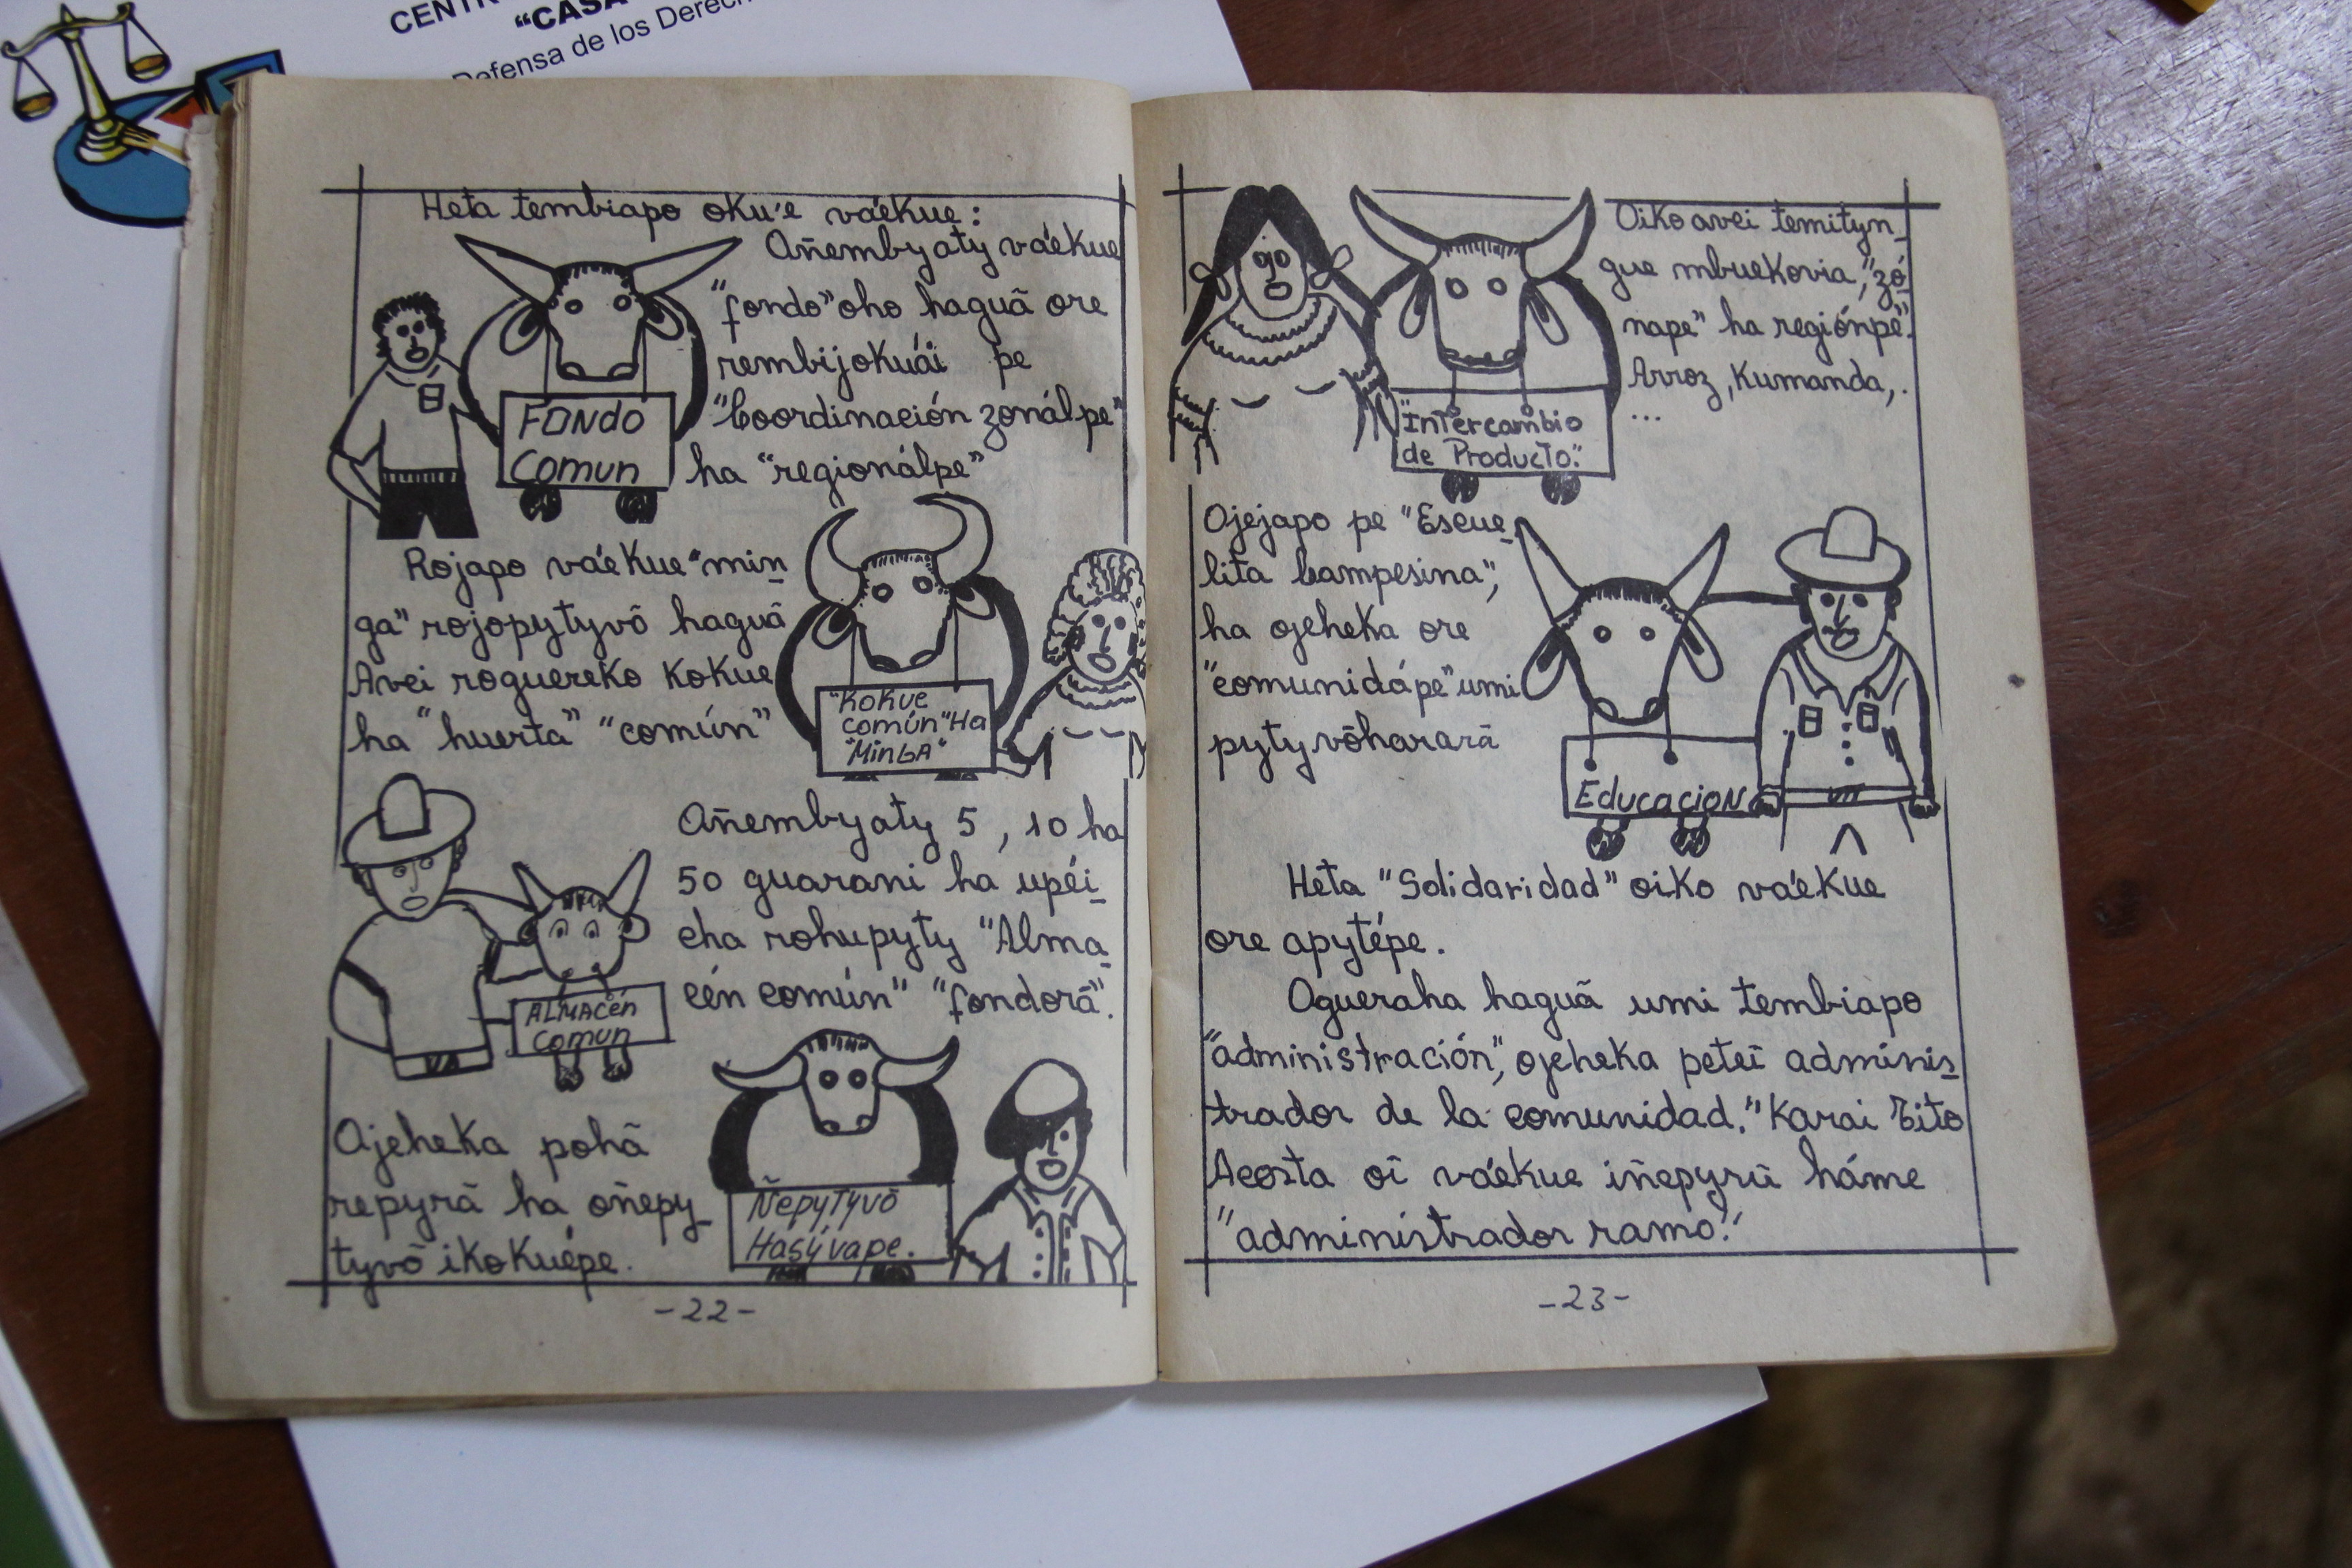 CENTR
"CASA
Defensa de los Derech
Heta tembiapo oku'e va'ekue:
Oñembyaty va'ekue
"fondo" oho haguã ore
rembijokuái pe
"Coordinación zonálpe"
ha "regionálpe"
FONDO
Comun
Rojapo va'ekue "min
ga" rojopytyvõ haguã
Avei roguereko kokue
ha "huerta" "común"
"Kokue
común" Ha
"MinGA"
Oñembyaty 5, 10 ha
50 guarani ha upéi
cha rohupyty "Alma
cén común" "fondorã".
ALMAcén
Comun
Ojeheka pohã
repyrã ha oñepy
tyvõ ikokuépe.
Ñepytyvõ
Hasývape.
-22-
Oiko avei temityn
gue mbuekovia, "zó
nape" ha regiónpe".
Arroz, Kumanda, .
...
"Intercambio
de Producto."
Ojejapo pe "Escue
lita Campesina",
ha ojeheka ore
"comunidápe" umi
pytyvõhararã
EducacioN
Heta "Solidaridad" oiko va'ekue
ore apytépe.
Ogueraha haguã umi tembiapo
"administración", ojeheka peteĩ adminis
trador de la comunidad." Karai Tito
Acosta oĩ va'ekue iñepyrũ háme
"administrador ramo."
-23-